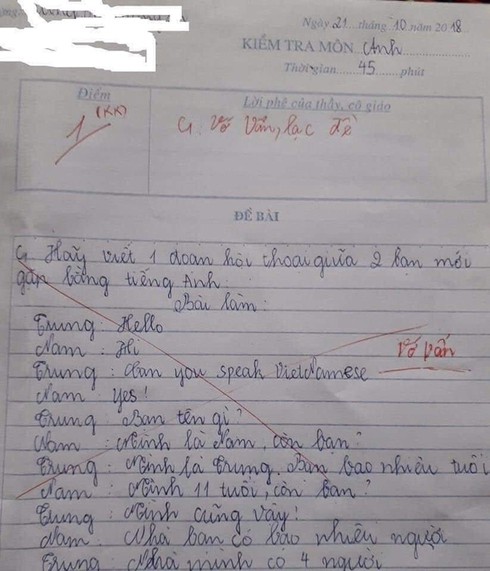 Ngày 21 tháng 10 năm 2018
KIỂM TRA MÔN Anh
Thời gian 45 phút
Điểm
Lời phê của thầy, cô giáo
1 (KK)
Vớ Vẩn, lạc đề
ĐỀ BÀI
Hãy viết 1 đoan hội thoại giữa 2 bạn mới
gặp bằng tiếng Anh.
Bài làm:
Trung: Hello
Nam: Hi
Vớ Vẩn
Trung: Can you speak Vietnamese
Nam: Yes!
Trung: Bạn tên gì?
Nam: Mình là Nam, còn bạn?
Trung: Mình là Trung, Bạn bao nhiêu tuổi
Nam: Mình 11 tuổi, còn bạn?
Trung: Mình cũng vậy!
Nam: Nhà bạn có bao nhiêu người
Trung: Nhà mình có 4 người